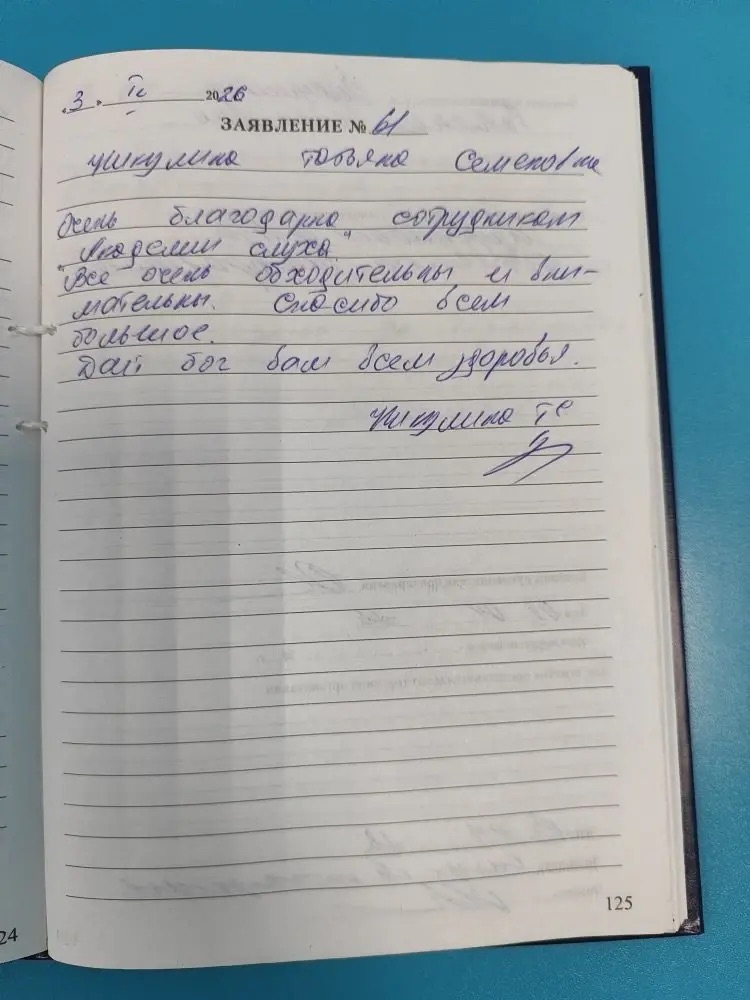 « 3 » IV 2026
ЗАЯВЛЕНИЕ № 61
Татьяна Семеновна
Очень благодарна сотрудникам
"Академии слуха"
Все очень обходительны и вни-
мательны. Спасибо всем
большое.
Дай бог вам всем здоровья.
125
24